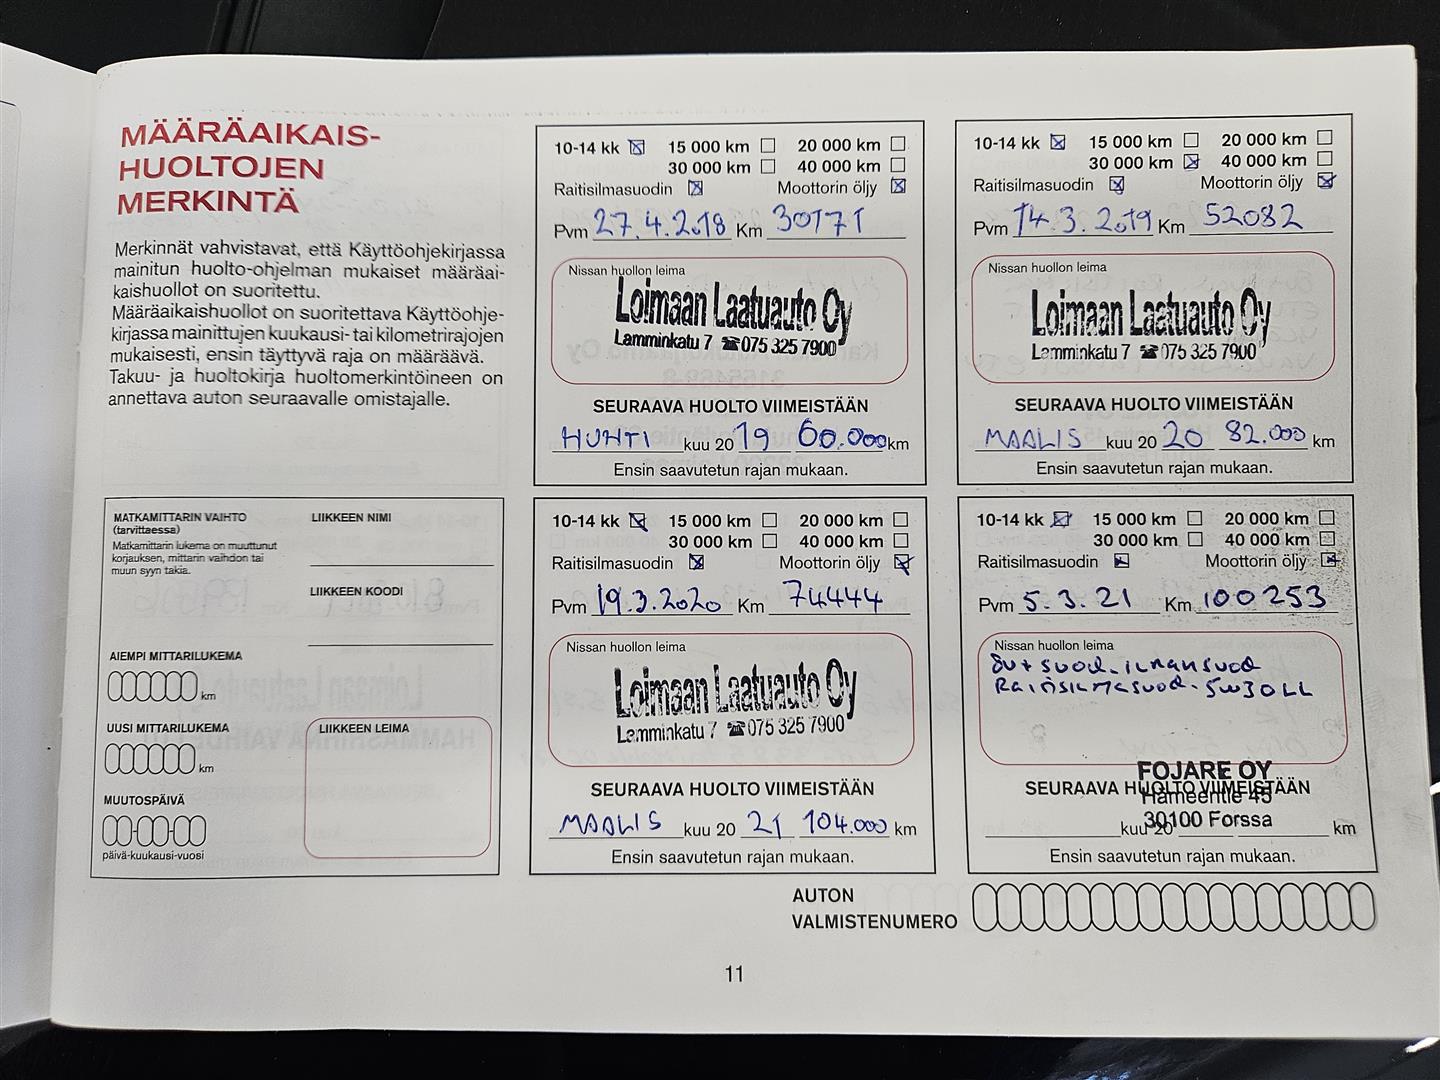 MÄÄRÄAIKAIS-
HUOLTOJEN
MERKINTÄ
Merkinnät vahvistavat, että Käyttöohjekirjassa
mainitun huolto-ohjelman mukaiset määräai-
kaishuollot on suoritettu.
Määräaikaishuollot on suoritettava Käyttöohje-
kirjassa mainittujen kuukausi- tai kilometrirajojen
mukaisesti, ensin täyttyvä raja on määräävä.
Takuu- ja huoltokirja huoltomerkintöineen on
annettava auton seuraavalle omistajalle.
MATKAMITTARIN VAIHTO
(tarvittaessa)
Matkamittarin lukema on muuttunut
korjauksen, mittarin vaihdon tai
muun syyn takia.
LIIKKEEN NIMI
LIIKKEEN KOODI
AIEMPI MITTARILUKEMA
km
UUSI MITTARILUKEMA
km
MUUTOSPÄIVÄ
päivä-kuukausi-vuosi
LIIKKEEN LEIMA
10-14 kk 15 000 km 20 000 km
30 000 km 40 000 km
Raitisilmasuodin Moottorin öljy
Pvm 27.4.2018 Km 30171
Nissan huollon leima
Loimaan Laatuauto Oy
Lamminkatu 7 ☎075 325 7900
SEURAAVA HUOLTO VIIMEISTÄÄN
HUHTI kuu 20 19 60.000 km
Ensin saavutetun rajan mukaan.
10-14 kk 15 000 km 20 000 km
30 000 km 40 000 km
Raitisilmasuodin Moottorin öljy
Pvm 14.3.2019 Km 52082
Nissan huollon leima
Loimaan Laatuauto Oy
Lamminkatu 7 ☎075 325 7900
SEURAAVA HUOLTO VIIMEISTÄÄN
MAALIS kuu 20 20 82.000 km
Ensin saavutetun rajan mukaan.
10-14 kk 15 000 km 20 000 km
30 000 km 40 000 km
Raitisilmasuodin Moottorin öljy
Pvm 19.3.2020 Km 74444
Nissan huollon leima
Loimaan Laatuauto Oy
Lamminkatu 7 ☎075 325 7900
SEURAAVA HUOLTO VIIMEISTÄÄN
MAALIS kuu 20 21 104.000 km
Ensin saavutetun rajan mukaan.
10-14 kk 15 000 km 20 000 km
30 000 km 40 000 km
Raitisilmasuodin Moottorin öljy
Pvm 5.3.21 Km 100253
Nissan huollon leima
Öv+suod. ilmansuod
Raitisilmasuod. 5w30LL
FOJARE OY
SEURAAVA HUOLTO VIIMEISTÄÄN
Hämeentie 45
30100 Forssa
kuu 20 km
Ensin saavutetun rajan mukaan.
AUTON
VALMISTENUMERO
11